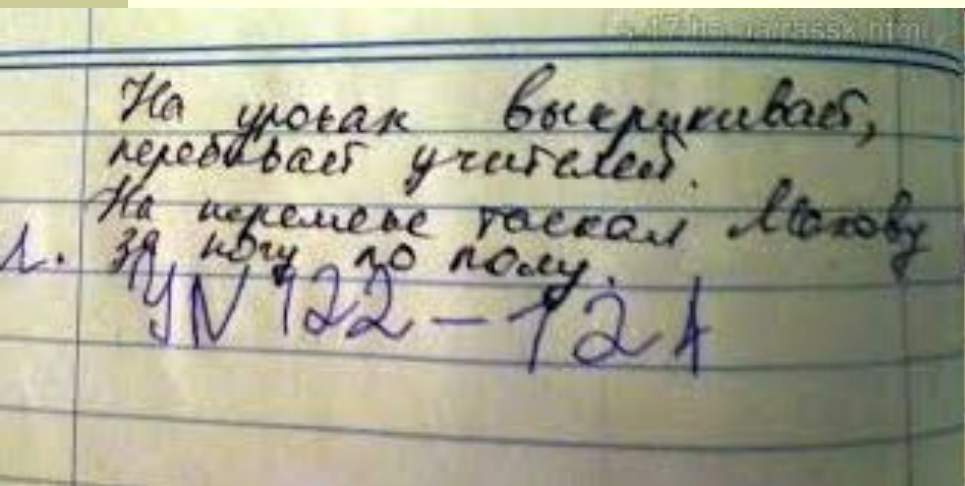 На уроках выкрикивает,
перебивает учителей.
На перемене таскал Махову
за ногу по полу.
УN 122-124